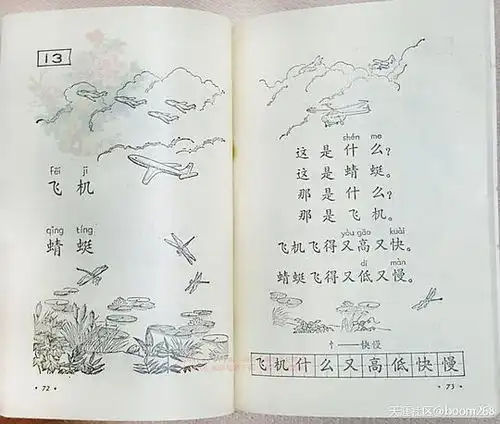 13
fēi jī
飞 机
qīng tíng
蜻 蜓
· 72 ·
shén me
这 是 什 么？
这 是 蜻 蜓。
那 是 什 么？
那 是 飞 机。
yòu gāo kuài
飞机飞得又高又快。
dī màn
蜻蜓飞得又低又慢。
忄——快慢
飞机什么又高低快慢
· 73 ·
天涯社区@boom268